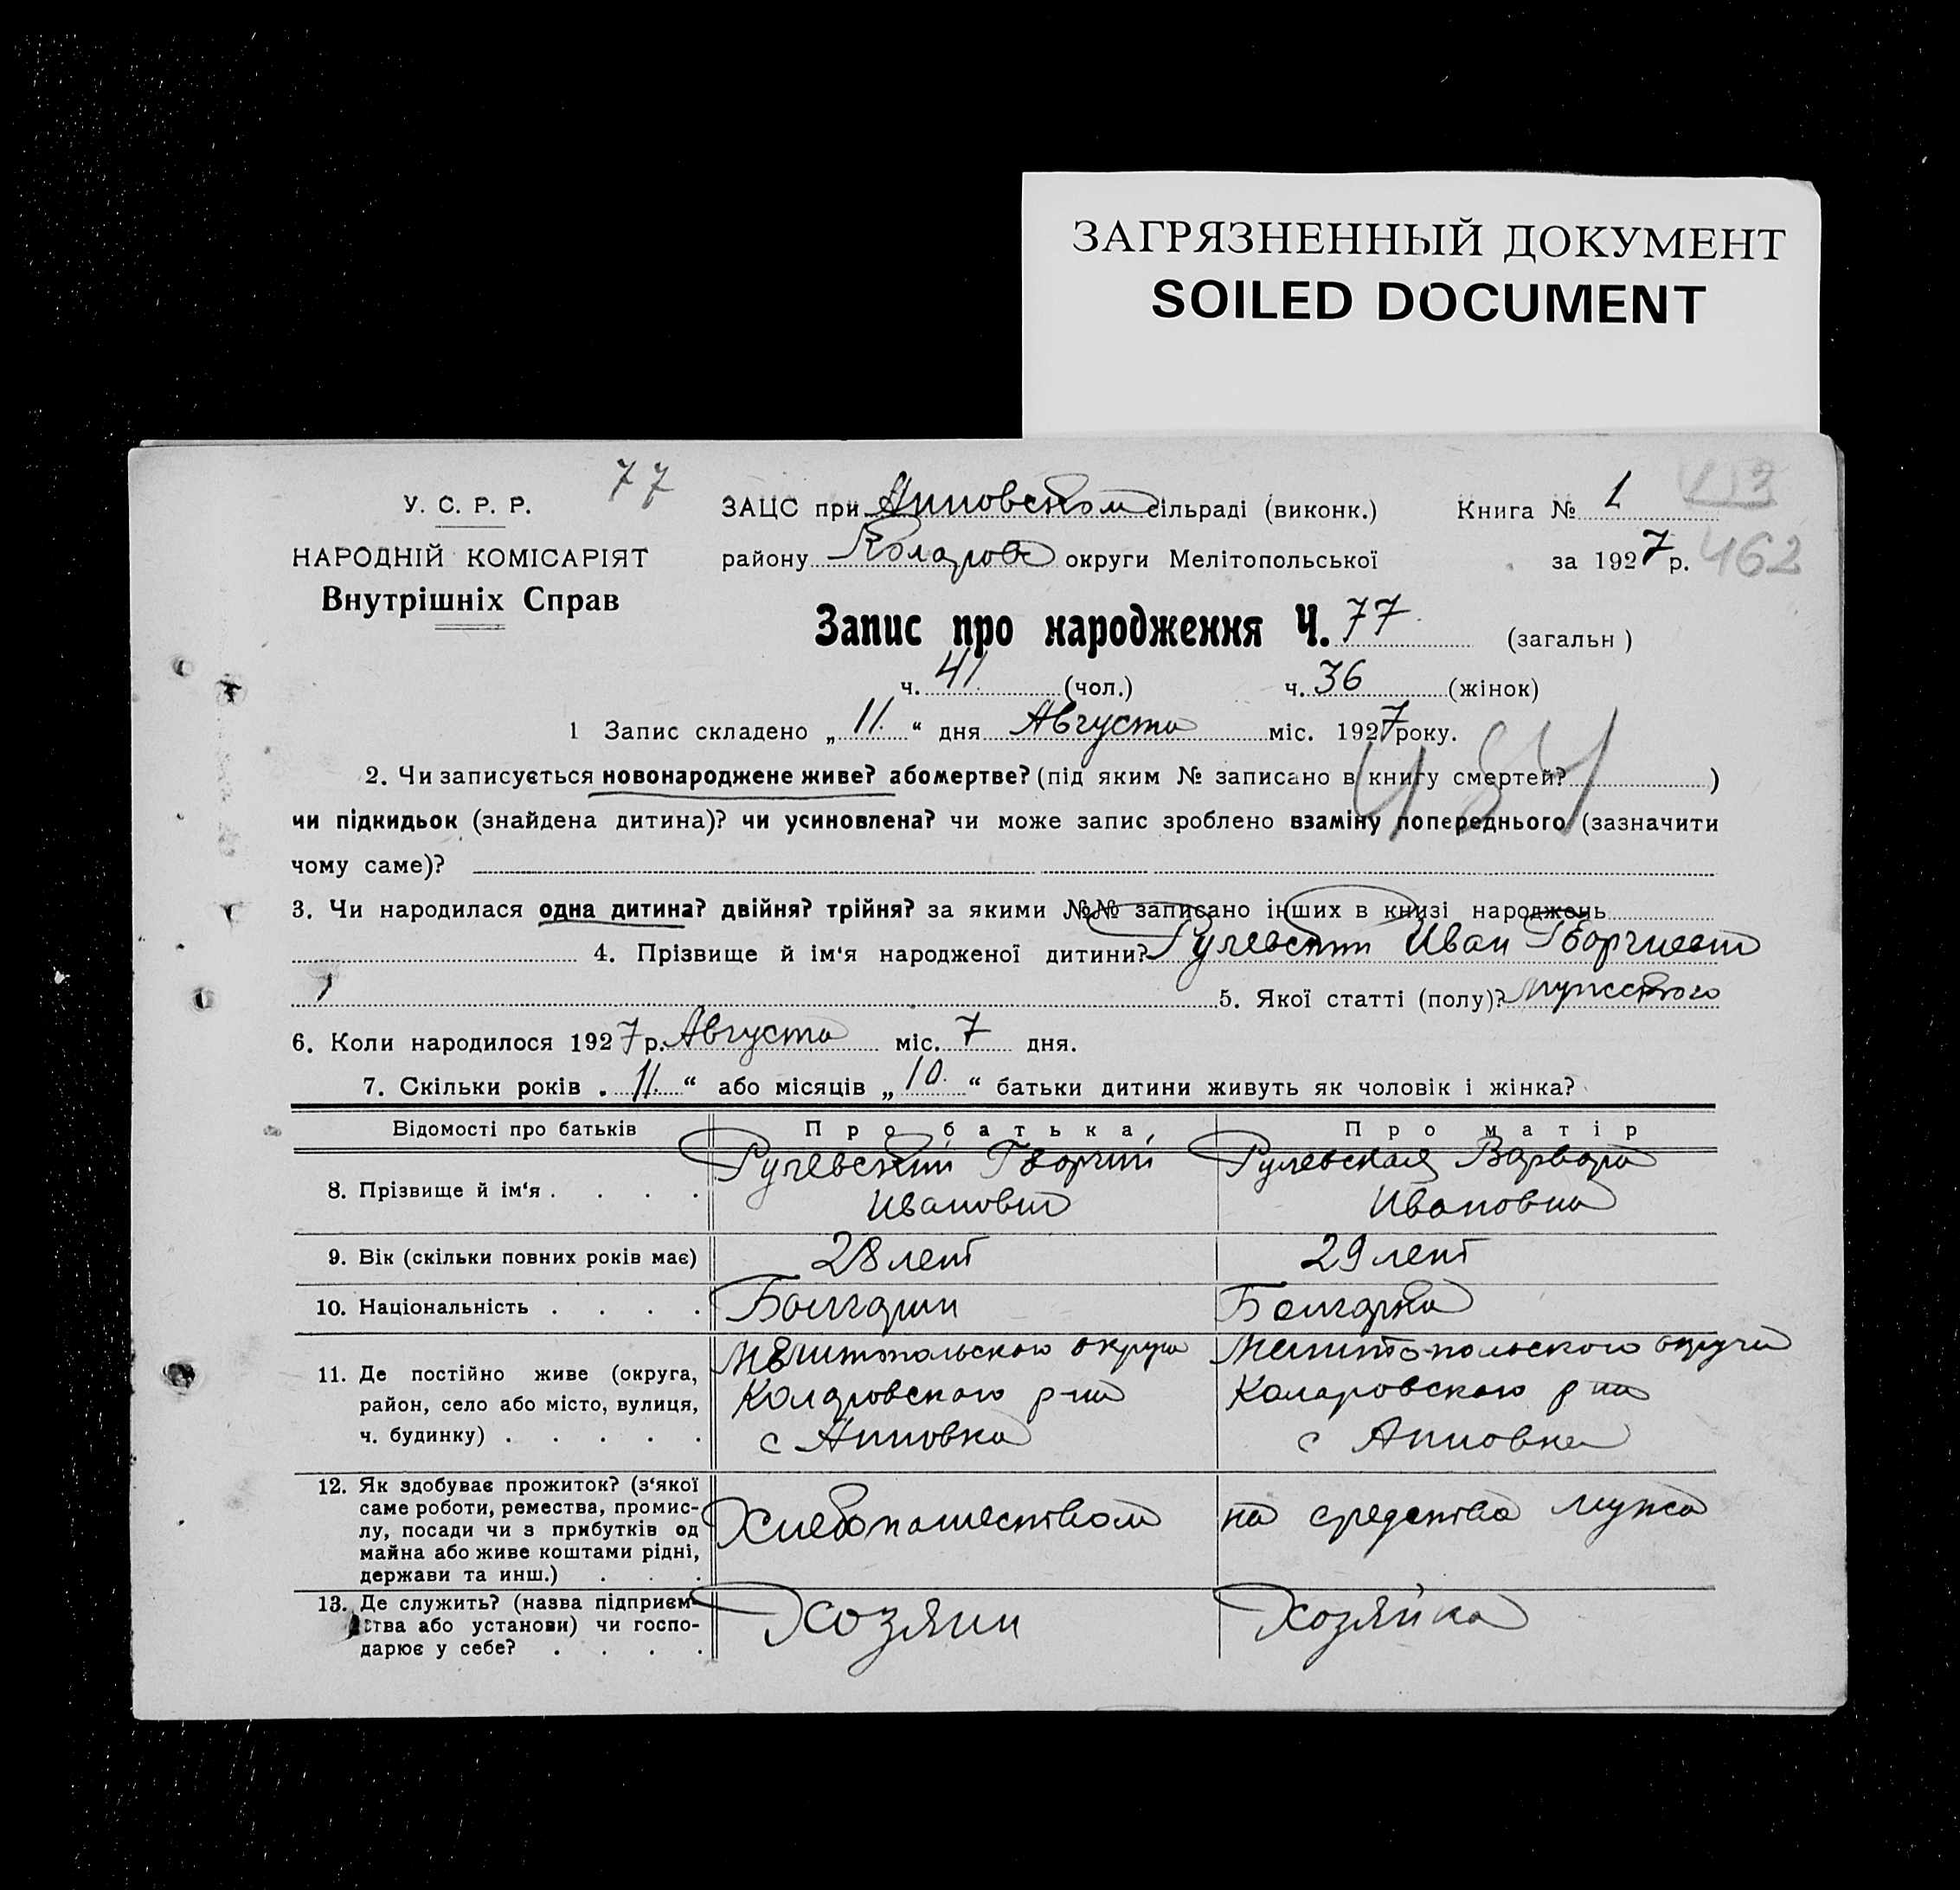 ЗАГРЯЗНЕННЫЙ ДОКУМЕНТ
SOILED DOCUMENT
77
У. С. Р. Р.
НАРОДНІЙ КОМІСАРІЯТ
Внутрішніх Справ
ЗАЦС при Анновском сільраді (виконк.) Книга № 1
району Коларов округи Мелітопольської за 1927 р. 462
Запис про народження Ч. 77 (загальн)
ч. 41 (чол.) ч. 36 (жінок)
1 Запис складено „11“ дня Августа міс. 1927 року.
2. Чи записується новонароджене живе? або мертве? (під яким № записано в книгу смертей? )
чи підкидьок (знайдена дитина)? чи усиновлена? чи може запис зроблено взаміну попереднього (зазначити
чому саме)?
3. Чи народилася одна дитина? двійня? трійня? за якими №№ записано інших в книзі народжень
4. Прізвище й ім'я народженої дитини? Иван
5. Якої статті (полу)? мужского
6. Коли народилося 1927 р. Августа міс. 7 дня.
7. Скільки років „11“ або місяців „10“ батьки дитини живуть як чоловік і жінка?
Відомості про батьків Про батька Про матір
8. Прізвище й ім'я . . . . Георгий Варвара
Иванович Ивановна
9. Вік (скільки повних років має) 28 лет 29 лет
10. Національність . . . . Болгарин Болгарка
11. Де постійно живе (округа, Мелитопольского округа Мелитопольского округа
район, село або місто, вулиця, Коларовского р-на Коларовского р-на
ч. будинку) . . . . . с Анновка с Анновка
12. Як здобуває прожиток? (з'якої
саме роботи, ремества, промис-
лу, посади чи з прибутків од Хлебопашеством на средства мужа
майна або живе коштами рідні,
держави та инш.) . . .
13. Де служить? (назва підприєм-
ства або установи) чи госпо- Хозяин Хозяйка
дарює у себе? . . . .